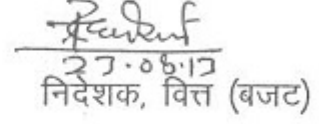 23.08.13
निदेशक, वित्त (बजट)